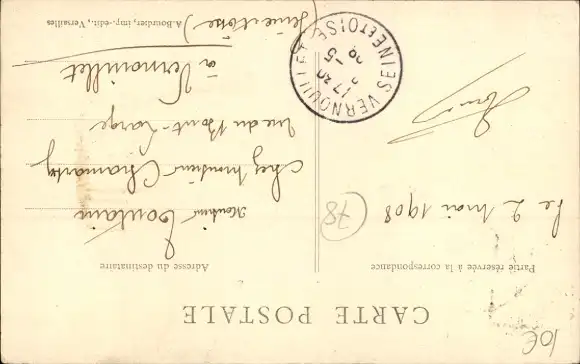 CARTE POSTALE
Partie réservée à la correspondance
Adresse du destinataire
le 2 Mai 1908
Monsieur Toutain
chez Monsieur Chamarty
rue du Pont-Large
à Vernouillet
(Seine et Oise)
VERNOUILLET
SEINE ET OISE
17 30
2 -5
A. Bourdier, imp.-édit., Versailles
78
10€